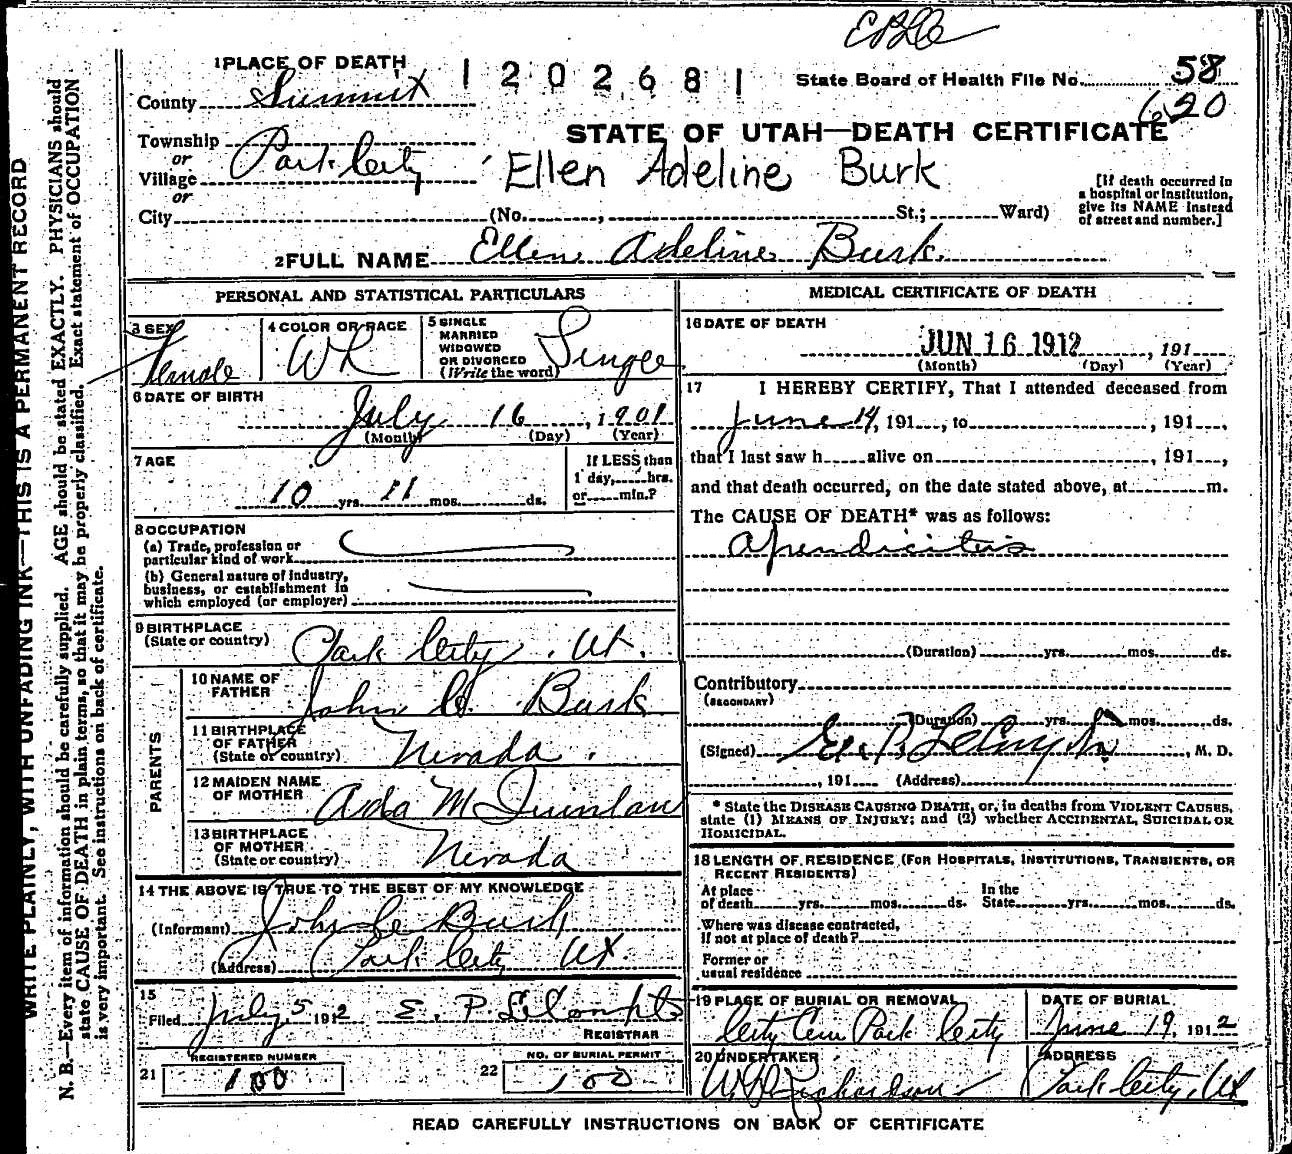 1 PLACE OF DEATH
1 2 0 2 6 8 1
State Board of Health File No. 58
620
County Summit
STATE OF UTAH—DEATH CERTIFICATE
Township
or
Village Park City
or
Ellen Adeline Burk
City (No. , St.; Ward)
[If death occurred in
a hospital or institution,
give its NAME instead
of street and number.]
2 FULL NAME Ellen Adeline Burk.
PERSONAL AND STATISTICAL PARTICULARS
3 SEX
Female
4 COLOR OR RACE
Wh
5 SINGLE
MARRIED
WIDOWED
OR DIVORCED
(Write the word)
Single
6 DATE OF BIRTH
July 16, 1901
(Month) (Day) (Year)
7 AGE
10 yrs. 11 mos. ds.
If LESS than
1 day, hrs.
or min.?
8 OCCUPATION
(a) Trade, profession or
particular kind of work
(b) General nature of industry,
business, or establishment in
which employed (or employer)
9 BIRTHPLACE
(State or country) Park City, Ut.
PARENTS
10 NAME OF
FATHER John Burk
11 BIRTHPLACE
OF FATHER
(State or country) Nevada.
12 MAIDEN NAME
OF MOTHER Ada M Quinlan
13 BIRTHPLACE
OF MOTHER
(State or country) Nevada
14 THE ABOVE IS TRUE TO THE BEST OF MY KNOWLEDGE
(Informant) John Burk
(Address) Park City Ut.
15
Filed July 5 1912 E. P.
REGISTRAR
21 REGISTERED NUMBER
100
22 NO. OF BURIAL PERMIT
100
MEDICAL CERTIFICATE OF DEATH
16 DATE OF DEATH
JUN 16 1912, 191
(Month) (Day) (Year)
17 I HEREBY CERTIFY, That I attended deceased from
June 14, 191 , to , 191 ,
that I last saw h alive on , 191 ,
and that death occurred, on the date stated above, at m.
The CAUSE OF DEATH* was as follows:
Apendicitis
(Duration) yrs. mos. ds.
Contributory
(SECONDARY)
(Duration) yrs. mos. ds.
(Signed) , M. D.
, 191 (Address)
* State the DISEASE CAUSING DEATH, or, in deaths from VIOLENT CAUSES,
state (1) MEANS OF INJURY; and (2) whether ACCIDENTAL, SUICIDAL OR
HOMICIDAL.
18 LENGTH OF RESIDENCE (FOR HOSPITALS, INSTITUTIONS, TRANSIENTS, OR
RECENT RESIDENTS)
At place
of death yrs. mos. ds.
In the
State yrs. mos. ds.
Where was disease contracted,
if not at place of death?
Former or
usual residence
19 PLACE OF BURIAL OR REMOVAL
City Cem Park City
DATE OF BURIAL
June 19, 1912
20 UNDERTAKER
Richardson
ADDRESS
Park City, Ut
READ CAREFULLY INSTRUCTIONS ON BACK OF CERTIFICATE
WRITE PLAINLY, WITH UNFADING INK—THIS IS A PERMANENT RECORD
N. B.—Every item of information should be carefully supplied. AGE should be stated EXACTLY. PHYSICIANS should
state CAUSE OF DEATH in plain terms, so that it may be properly classified. Exact statement of OCCUPATION
is very important. See instructions on back of certificate.